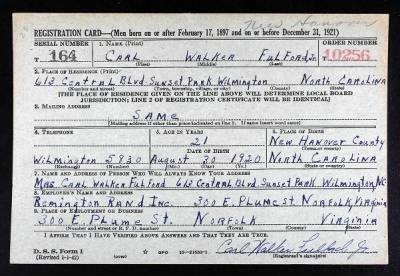 New Hanover
REGISTRATION CARD—(Men born on or after February 17, 1897 and on or before December 31, 1921)
SERIAL NUMBER 1. NAME (Print) ORDER NUMBER
T 164 CARL WALKER FULFORD Jr. 10256
(First) (Middle) (Last)
2. PLACE OF RESIDENCE (Print)
613 Central Blvd. Sunset Park Wilmington North Carolina
(Number and street) (Town, township, village, or city) (County) (State)
[THE PLACE OF RESIDENCE GIVEN ON THE LINE ABOVE WILL DETERMINE LOCAL BOARD
JURISDICTION; LINE 2 OF REGISTRATION CERTIFICATE WILL BE IDENTICAL]
3. MAILING ADDRESS
SAME
[Mailing address if other than place indicated on line 2. If same insert word same]
4. TELEPHONE 5. AGE IN YEARS 6. PLACE OF BIRTH
21 New Hanover County
DATE OF BIRTH (Town or county)
Wilmington 5830 August 30 1920 North Carolina
(Exchange) (Number) (Mo.) (Day) (Yr.) (State or country)
7. NAME AND ADDRESS OF PERSON WHO WILL ALWAYS KNOW YOUR ADDRESS
Mrs. Carl Walker Fulford 613 Central Blvd. Sunset Park Wilmington, NC
8. EMPLOYER'S NAME AND ADDRESS
Remington Rand Inc. 300 E. Plume St. Norfolk, Virginia
9. PLACE OF EMPLOYMENT OR BUSINESS
300 E. Plume St. Norfolk Virginia
(Number and street or R. F. D. number) (Town) (County) (State)
I AFFIRM THAT I HAVE VERIFIED ABOVE ANSWERS AND THAT THEY ARE TRUE.
D. S. S. Form 1 GPO Carl Walker Fulford Jr.
(Revised 1-1-42) (Registrant's signature)